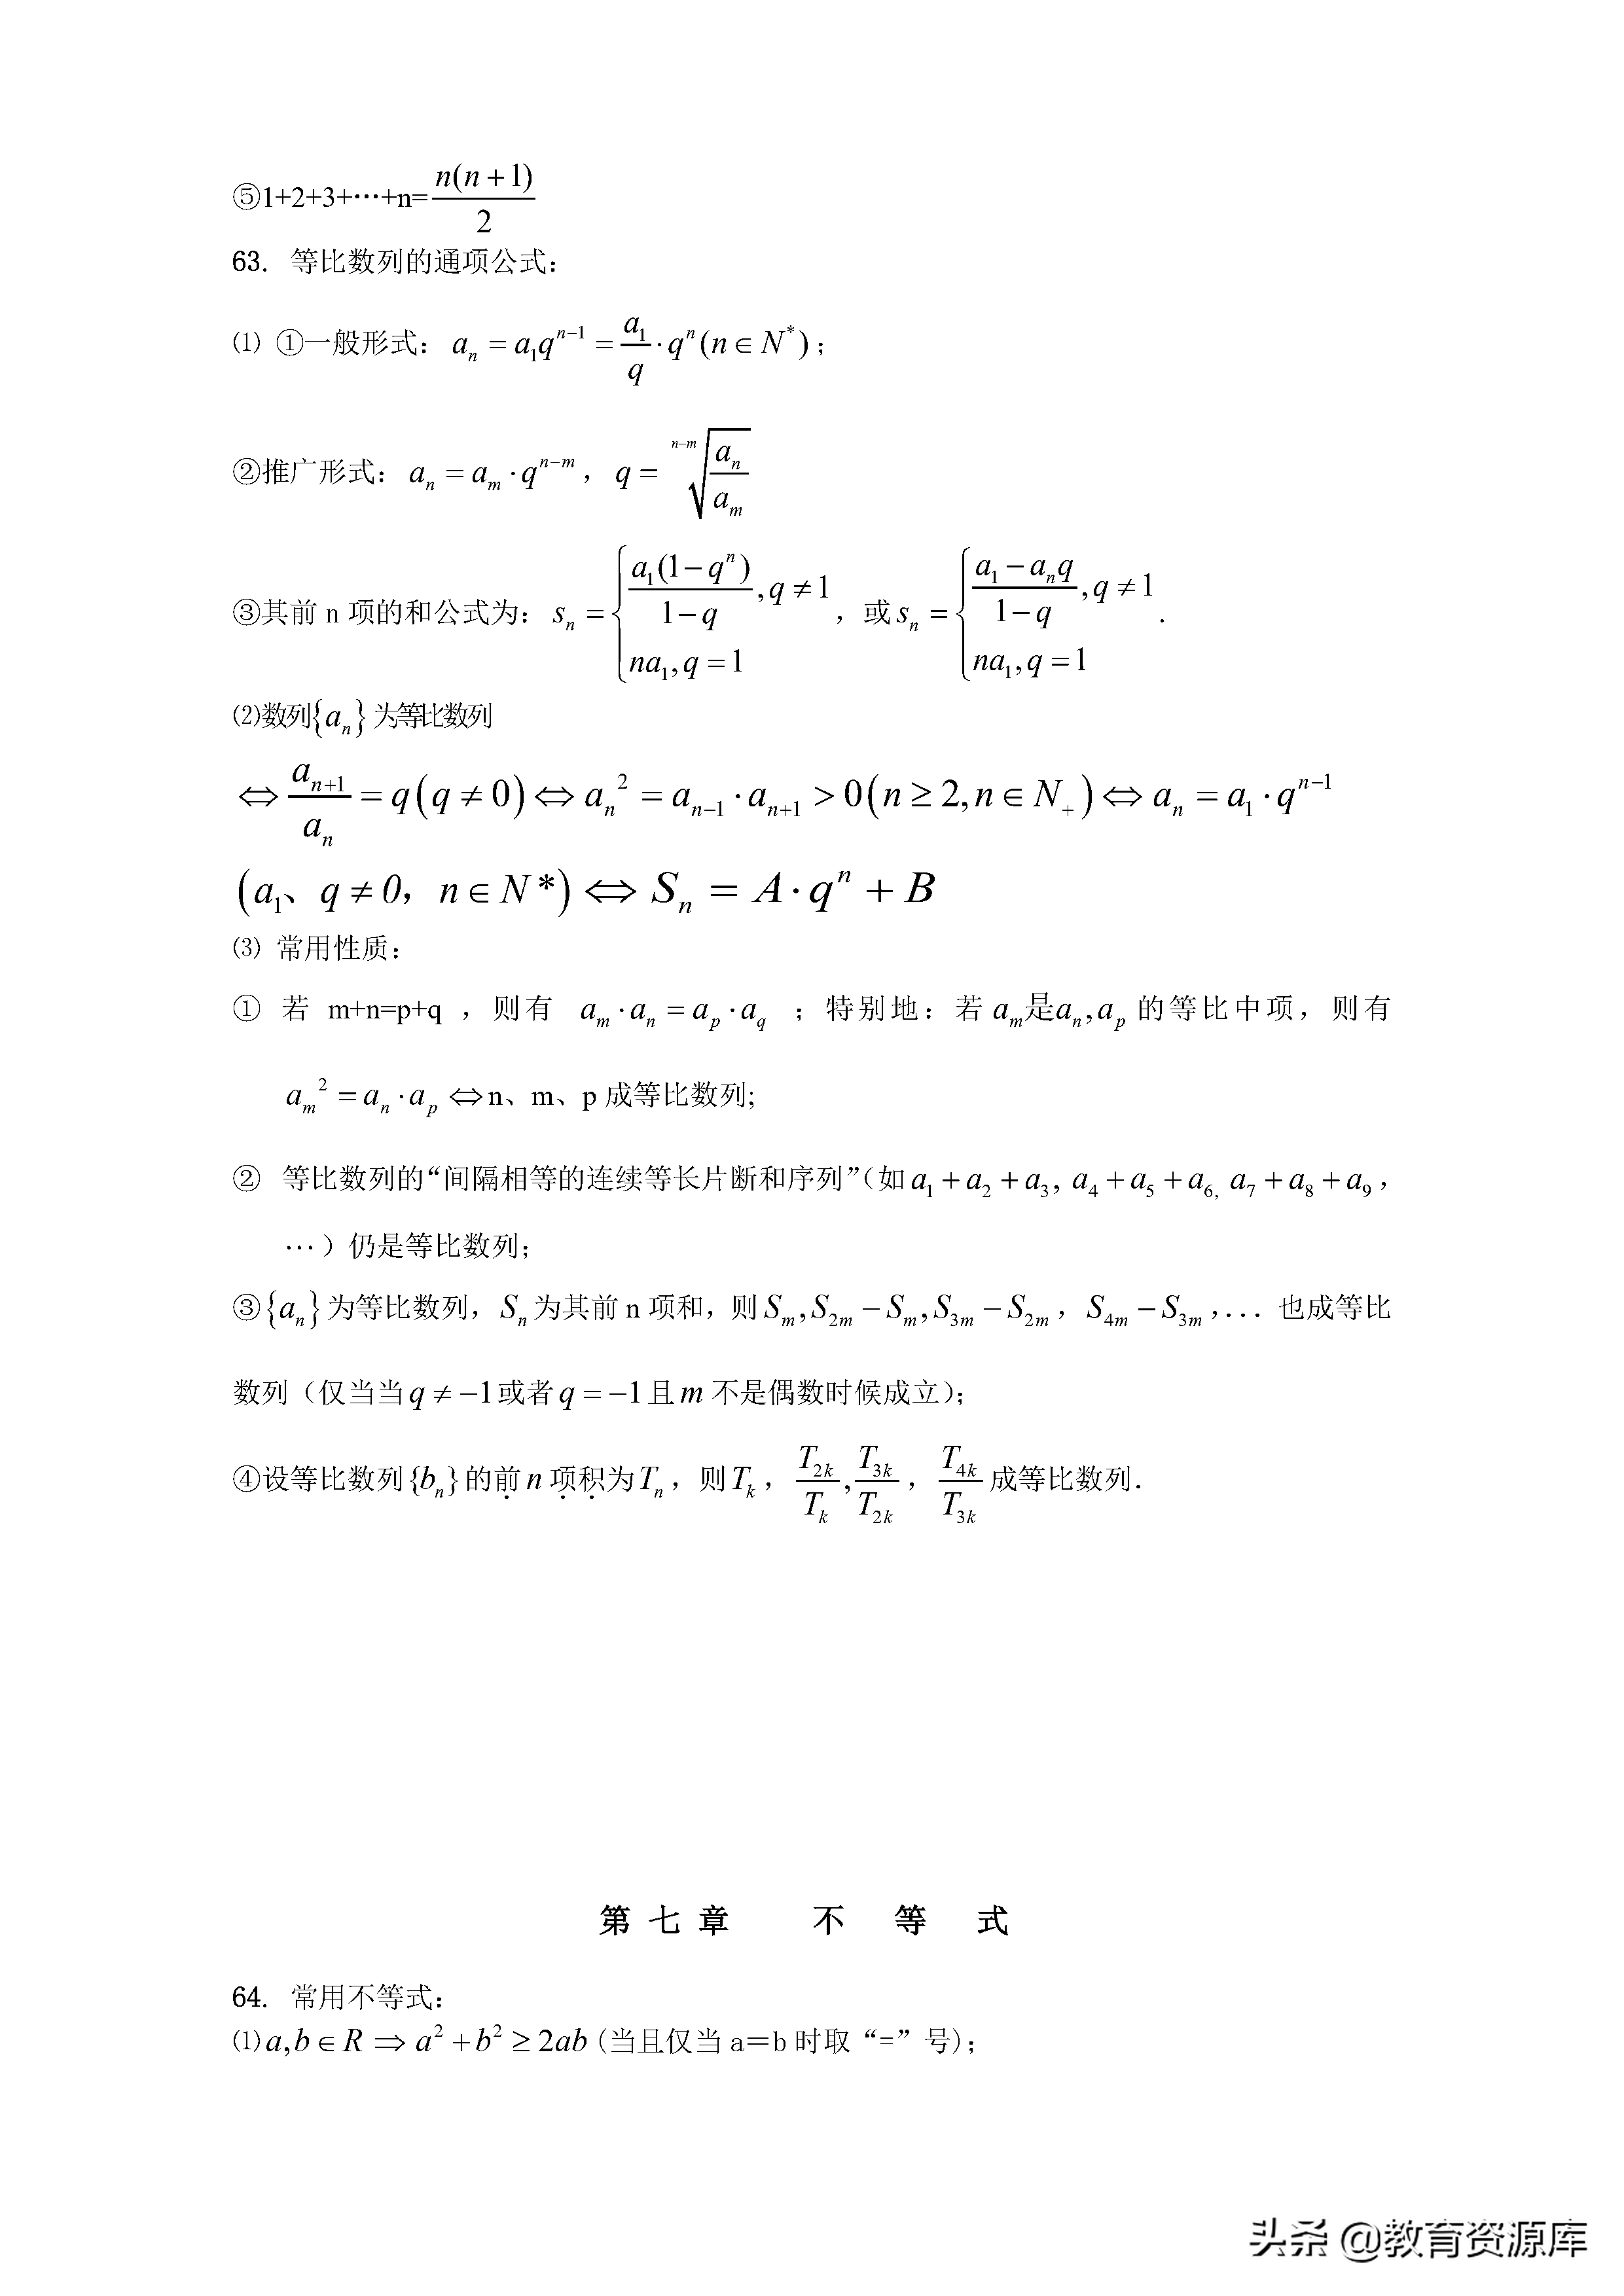 ⑤1+2+3+…+n=\frac{n(n+1)}{2}
63. 等比数列的通项公式：
⑴ ①一般形式：a_n=a_1q^{n-1}=\frac{a_1}{q}·q^n(n∈N^*)；
②推广形式：a_n=a_m·q^{n-m}，q=\sqrt[n-m]{\frac{a_n}{a_m}}
③其前 n 项的和公式为：s_n=\begin{cases}\frac{a_1(1-q^n)}{1-q},q≠1\\na_1,q=1\end{cases}，或s_n=\begin{cases}\frac{a_1-a_nq}{1-q},q≠1\\na_1,q=1\end{cases}.
⑵数列{a_n}为等比数列
⇔\frac{a_{n+1}}{a_n}=q(q≠0)⇔a_n^2=a_{n-1}·a_{n+1}>0(n≥2,n∈N_+)⇔a_n=a_1·q^{n-1}
(a_1、q≠0，n∈N*)⇔S_n=A·q^n+B
⑶ 常用性质：
① 若 m+n=p+q ，则有 a_m·a_n=a_p·a_q ；特别地：若a_m是a_n,a_p的等比中项，则有
a_m^2=a_n·a_p⇔n、m、p 成等比数列;
② 等比数列的“间隔相等的连续等长片断和序列”（如a_1+a_2+a_3, a_4+a_5+a_{6,} a_7+a_8+a_9，
…）仍是等比数列；
③{a_n}为等比数列，S_n为其前 n 项和，则S_m,S_{2m}-S_m,S_{3m}-S_{2m}，S_{4m}-S_{3m},... 也成等比
数列（仅当当q≠-1或者q=-1且m 不是偶数时候成立）；
④设等比数列{b_n}的前n项积为T_n，则T_k，\frac{T_{2k}}{T_k},\frac{T_{3k}}{T_{2k}}，\frac{T_{4k}}{T_{3k}}成等比数列．
第 七 章 不 等 式
64. 常用不等式：
⑴a,b∈R⇒a^2+b^2≥2ab(当且仅当 a＝b 时取“=”号)；
头条 @教育资源库